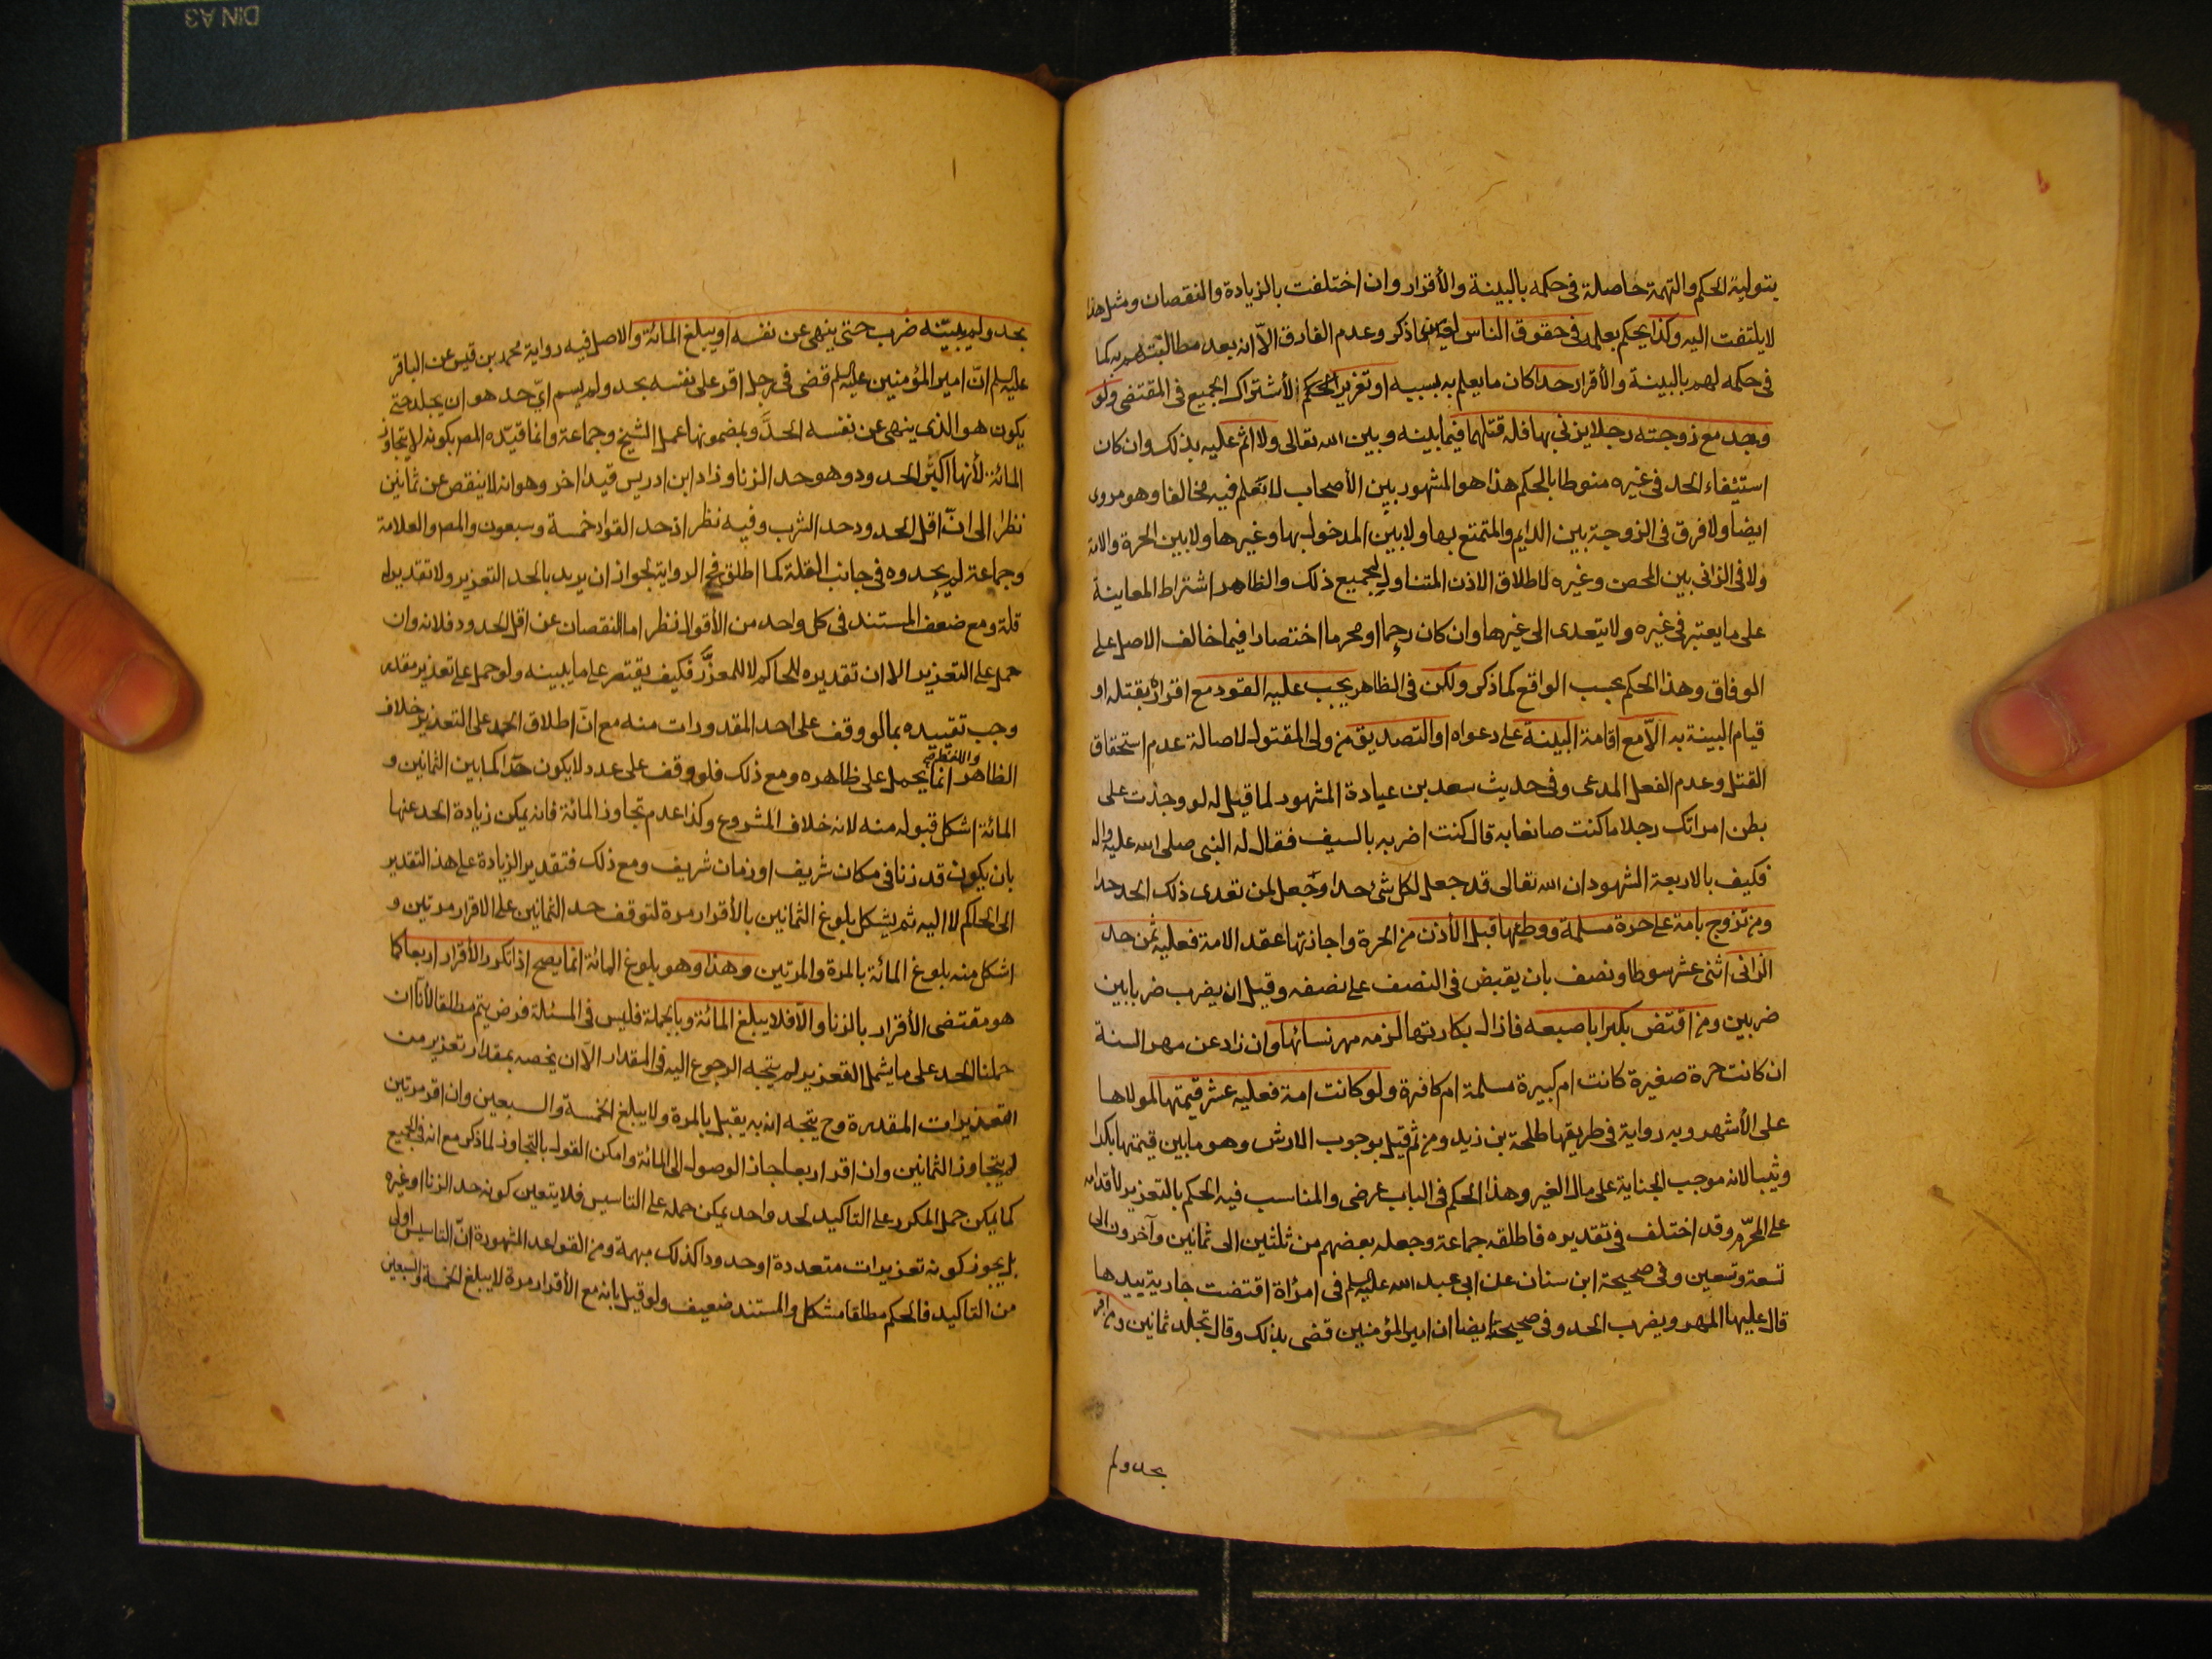 بتولية الحكم والتهمة حاصلة في حكمه بالبينة والأقرار وان اختلفت بالزيادة والنقصان ومثل هذا
لا يلتفت اليه وكذا يحكم بعلمه في حقوق الناس لعين ما ذكر وعدم الفارق الّا انه بعد مطالبتهم به كما
في حكمه لهم بالبينة والأقرار حدا كان ما يعلم به بسببه او تعزيرا لحكم الأشتراك الجميع في المقتضى ولو
وجد مع زوجته رجلا يزني بها فله قتلهما فيما بينه وبين الله تعالى ولا اثم عليه بذلك وان كان
استيفاء الحد في غيره منوطا بالحكم هذا هو المشهور بين الأصحاب لا نعلم فيه مخالفا وهو مروى
ايضا ولا فرق في الزوجة بين الدايم والمتمتع بها ولا بين المدخول بها وغيرها ولا بين الحرة والامة
ولا في الزاني بين المحصن وغيره لاطلاق الاذن المتناول لجميع ذلك والظاهر اشتراط المعاينة
على ما يعتبر في غيره ولا يتعدى الى غيرها وان كان رحما او محرما اختصارا فيما خالف الاصل على
الوفاق وهذا الحكم بحسب الواقع كما ذكر ولكن في الظاهر يجب عليه القود مع اقراره بقتله او
قيام البينة به الّا مع اقامة البينة على دعواه او التصديق من ولى المقتول لاصالة عدم استحقاق
القتل وعدم الفعل المدعى وفي حديث سعد بن عبادة المشهور لما قيل له لو وجدت على
بطن امراتك رجلا ما كنت صانعا به قال كنت اضربه بالسيف فقال له النبي صلى الله عليه واله
فكيف بالاربعة الشهود ان الله تعالى قد جعل لكل شئ حدا وجعل لمن تعدى ذلك الحد حدا
ومن تزوج بامة على حرة مسلمة ووطئها قبل الأذن من الحرة واجازتها عقد الامة فعليه ثمن حد
الزاني اثنى عشر سوطا ونصف بان يقبض في النصف على نصفه وقيل ان يضرب ضربا بين
ضربين ومن اقتض بكرا باصبعه فازال بكارتها لزمه مهر نسائها وان زاد عن مهر السنة
ان كانت حرة صغيرة كانت ام كبيرة مسلمة ام كافرة ولو كانت امة فعليه عشر قيمتها لمولاها
على الأشهر وبه رواية في طريقها طلحة بن زيد ومن ثم قيل بوجوب الارش وهو ما بين قيمتها بكرا
وثيبا لانه موجب الجناية على مال الغير وهذا الحكم في الباب عرضى والمناسب فيه الحكم بالتعزير لأقدامه
على المحرّم وقد اختلف في تقديره فاطلقه جماعة وجعله بعضهم من ثلثين الى ثمانين وآخرون الى
تسعة وتسعين وفي صحيحة ابن سنان عن ابي عبد الله عليه السلم في امرأة اقتضت جارية بيدها
قال عليها المهر ويضرب الحد وفي صحيحته ايضا ان امير المؤمنين قضى بذلك وقال تجلد ثمانين ومن اقر
بحد ولم
بحد ولم يبيّنه ضرب حتى ينهى عن نفسه او يبلغ المائة والاصل فيه رواية محمد بن قيس عن الباقر
عليه السلم انّ امير المؤمنين عليه السلم قضى في رجل اقر على نفسه بحد ولم يسم اىّ حد هو ان يجلد حتى
يكون هو الذى ينهى عن نفسه الحدَّ وبمضمونها عمل الشيخ وجماعة وانما قيّده المص بكونه لا يتجاوز
المائة لأنها اكبر الحدود وهو حد الزنا وزاد ابن ادريس قيدا اخر وهو انه لا ينقص عن ثمانين
نظرا الى انّ اقل الحدود حد الشرب وفيه نظر اذ حد القواد خمسة وسبعون والمص والعلامة
وجماعة لم يحدوه في جانب القلة كما اطلق في الرواية لجواز ان يريد بالحد التعزير ولا تقدير له
قلة ومع ضعف المستند في كل واحد من الأقوال نظر اما النقصان عن اقل الحدود فلانه وان
حمل على التعزير الا ان تقديره للحاكم لا للمعزَّر فكيف يقتصر على ما يبينه ولو حمل على تعزير مقدر
وجب تقييده بما لو وقف على احد المقدورات منه مع انّ اطلاق الحد على التعزير خلاف
الظاهر واللفظ انما يحمل على ظاهره ومع ذلك فلو وقف على عدد لا يكون حدّا كما بين الثمانين و
المائة اشكل قبوله منه لانه خلاف المشروع وكذا عدم تجاوز المائة فانه يمكن زيادة الحد عنها
بان يكون قد زنا في مكان شريف او زمان شريف ومع ذلك فتقدير الزيادة على هذا التقدير
الى الحاكم لا اليه ثم يشكل بلوغ الثمانين بالأقرار مرة لتوقف حد الثمانين على الاقرار مرتين و
اشكل منه بلوغ المائة بالمرة والمرتين وهذا وهو بلوغ المائة انما يصح اذا تكرر الأقرار اربعا كما
هو مقتضى الأقرار بالزنا والّا فلا يبلغ المائة وبالجملة فليس في المسئلة فرض يتم مطلقا لأنا ان
حملنا الحد على ما يشمل التعزير لم يتجه الرجوع اليه في المقدار الّا ان يخصه بمقدار تعزير من
التعزيرات المقدرة وح يتجه انه به يقبل بالمرة ولا يبلغ الخمسة والسبعين وان اقر مرتين
لم يتجاوز الثمانين وان اقر اربعا جاز الوصول الى المائة وامكن القول بالتجاوز لما ذكر مع انه في الجميع
كما يمكن حمل المكرر على التاكيد لحد واحد يمكن حمله على التاسيس فلا يتعين كونه حد الزنا او غيره
بل يجوز كونه تعزيرات متعددة او حدودا كذلك مبهمة ومن القواعد المشهورة انّ التاسيس اولى
من التاكيد فالحكم مطلقا مشكل والمستند ضعيف ولو قيل بانه مع الأقرار مرة لا يبلغ الخمسة والسبعين